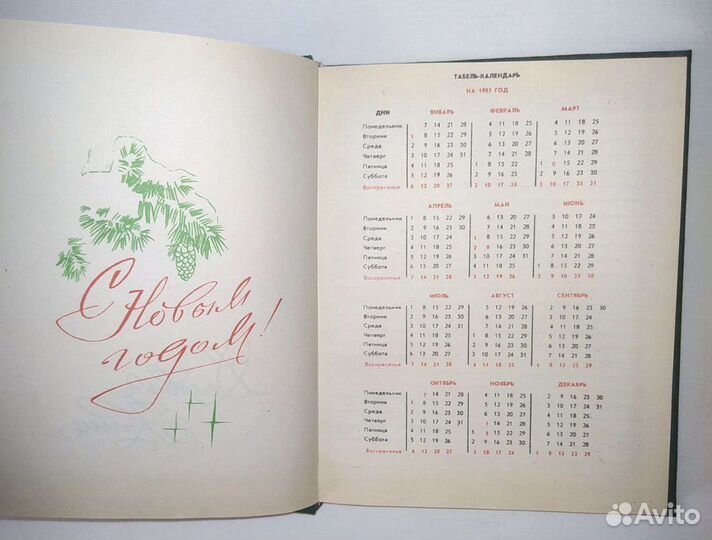 С Новым
годом!
ТАБЕЛЬ-КАЛЕНДАРЬ
НА 1985 ГОД
ДНИ ЯНВАРЬ ФЕВРАЛЬ МАРТ
Понедельник 7 14 21 28 4 11 18 25 4 11 18 25
Вторник 1 8 15 22 29 5 12 19 26 5 12 19 26
Среда 2 9 16 23 30 6 13 20 27 6 13 20 27
Четверг 3 10 17 24 31 7 14 21 28 7 14 21 28
Пятница 4 11 18 25 1 8 15 22 1 8 15 22 29
Суббота 5 12 19 26 2 9 16 23 2 9 16 23 30
Воскресенье 6 13 20 27 3 10 17 24 3 10 17 24 31
АПРЕЛЬ МАЙ ИЮНЬ
Понедельник 1 8 15 22 29 6 13 20 27 3 10 17 24
Вторник 2 9 16 23 30 7 14 21 28 4 11 18 25
Среда 3 10 17 24 1 8 15 22 29 5 12 19 26
Четверг 4 11 18 25 2 9 16 23 30 6 13 20 27
Пятница 5 12 19 26 3 10 17 24 31 7 14 21 28
Суббота 6 13 20 27 4 11 18 25 1 8 15 22 29
Воскресенье 7 14 21 28 5 12 19 26 2 9 16 23 30
ИЮЛЬ АВГУСТ СЕНТЯБРЬ
Понедельник 1 8 15 22 29 5 12 19 26 2 9 16 23 30
Вторник 2 9 16 23 30 6 13 20 27 3 10 17 24
Среда 3 10 17 24 31 7 14 21 28 4 11 18 25
Четверг 4 11 18 25 1 8 15 22 29 5 12 19 26
Пятница 5 12 19 26 2 9 16 23 30 6 13 20 27
Суббота 6 13 20 27 3 10 17 24 31 7 14 21 28
Воскресенье 7 14 21 28 4 11 18 25 1 8 15 22 29
ОКТЯБРЬ НОЯБРЬ ДЕКАБРЬ
Понедельник 7 14 21 28 4 11 18 25 2 9 16 23 30
Вторник 1 8 15 22 29 5 12 19 26 3 10 17 24 31
Среда 2 9 16 23 30 6 13 20 27 4 11 18 25
Четверг 3 10 17 24 31 7 14 21 28 5 12 19 26
Пятница 4 11 18 25 1 8 15 22 29 6 13 20 27
Суббота 5 12 19 26 2 9 16 23 30 7 14 21 28
Воскресенье 6 13 20 27 3 10 17 24 1 8 15 22 29
Avito